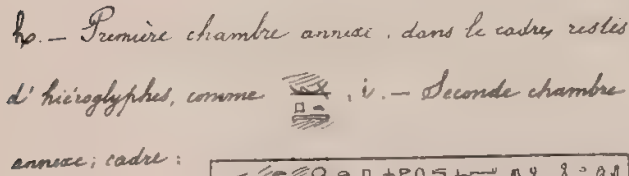 h. — Première chambre annexe, dans le cadre, restes
d'hiéroglyphes, comme , i. — Seconde chambre
annexe; cadre :